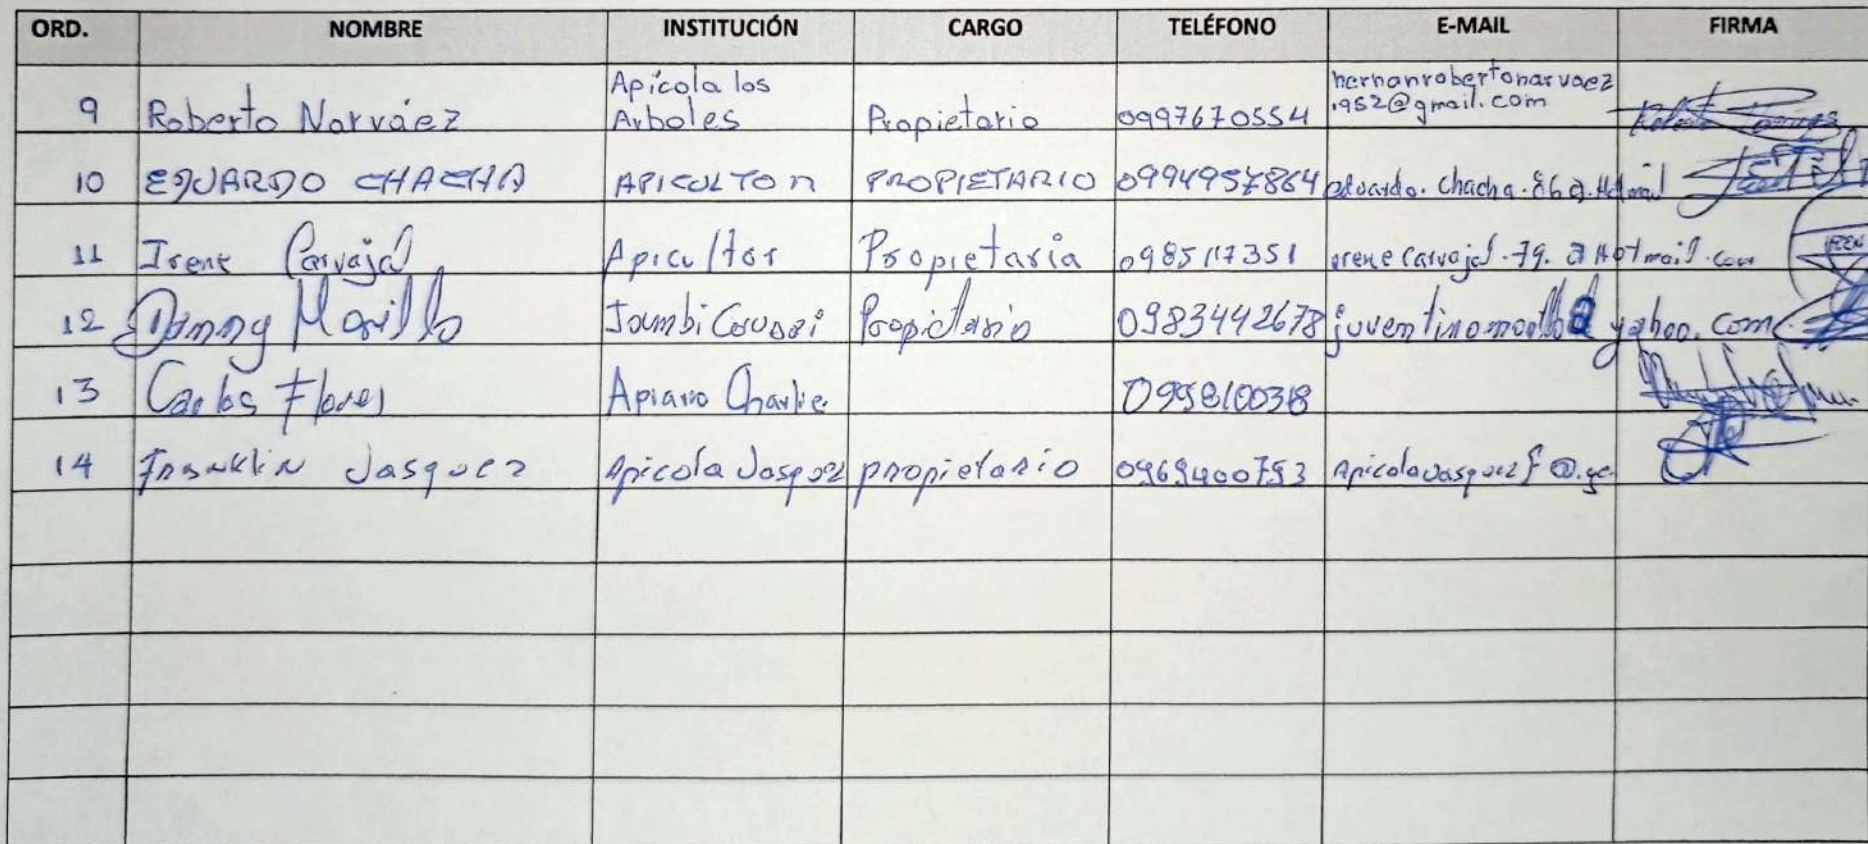 ORD. NOMBRE INSTITUCIÓN CARGO TELÉFONO E-MAIL FIRMA
9 Roberto Narváez Apícola los Arboles Propietario 0997670554 hernanrobertonarvaez.1952@gmail.com
10 EDUARDO CHACHA APICULTOR PROPIETARIO 0994957864 eduardo.chacha.86@.Hotmail
11 Irene Carvajal Apicultor Propietaria 0985117351 irene carvajal.79.@Hotmail.com
12 Danny Morillo Propietario 0983442678 juventinomorillo@yahoo.com
13 Carlos Flores Apiario Charlie
14 Franklin Vasquez Apicola Vasquez propietario 0969400793